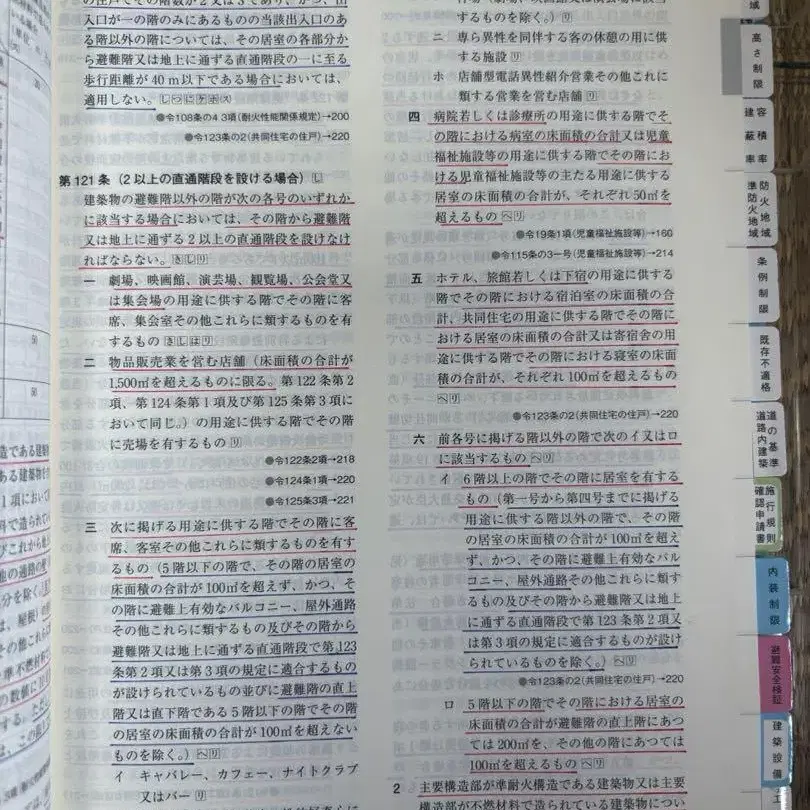 の住戸でその階数が2又は3であり、かつ、出
入口が一の階のみにあるものの当該出入口のあ
る階以外の階については、その居室の各部分か
ら避難階又は地上に通ずる直通階段の一に至る
歩行距離が40m以下である場合においては、
適用しない。
●令108条の4 3項(耐火性能関係規定)→200
●令123条の2(共同住宅の住戸)→220
第121条(2以上の直通階段を設ける場合)
建築物の避難階以外の階が次の各号のいずれか
に該当する場合においては、その階から避難階
又は地上に通ずる2以上の直通階段を設けなけ
ればならない。
一 劇場、映画館、演芸場、観覧場、公会堂又
は集会場の用途に供する階でその階に客
席、集会室その他これらに類するものを有
するもの
二 物品販売業を営む店舗(床面積の合計が
1,500㎡を超えるものに限る。第122条第2
項、第124条第1項及び第125条第3項にお
いて同じ。)の用途に供する階でその階
に売場を有するもの
●令122条2項→218
●令124条1項→220
●令125条3項→221
三 次に掲げる用途に供する階でその階に客
席、客室その他これらに類するものを有す
るもの(5階以下の階で、その階の居室の
床面積の合計が100㎡を超えず、かつ、そ
の階に避難上有効なバルコニー、屋外通路
その他これらに類するもの及びその階から
避難階又は地上に通ずる直通階段で第123
条第2項又は第3項の規定に適合するもの
が設けられているもの並びに避難階の直上
階又は直下階である5階以下の階でその階
の居室の床面積の合計が100㎡を超えない
ものを除く。)
イ キャバレー、カフェー、ナイトクラブ
又はバー
するものを除く。)
ニ 専ら異性を同伴する客の休憩の用に供
する施設
ホ 店舗型電話異性紹介営業その他これに
類する営業を営む店舗
四 病院若しくは診療所の用途に供する階でそ
の階における病室の床面積の合計又は児童
福祉施設等の用途に供する階でその階にお
ける児童福祉施設等の主たる用途に供する
居室の床面積の合計が、それぞれ50㎡を
超えるもの
●令19条1項(児童福祉施設等)→160
●令115条の3一号(児童福祉施設等)→214
五 ホテル、旅館若しくは下宿の用途に供する
階でその階における宿泊室の床面積の合
計、共同住宅の用途に供する階でその階に
おける居室の床面積の合計又は寄宿舎の用
途に供する階でその階における寝室の床面
積の合計が、それぞれ100㎡を超えるもの
●令123条の2(共同住宅の住戸)→220
六 前各号に掲げる階以外の階で次のイ又はロ
に該当するもの
イ 6階以上の階でその階に居室を有する
もの(第一号から第四号までに掲げる
用途に供する階以外の階で、その階
の居室の床面積の合計が100㎡を超え
ず、かつ、その階に避難上有効なバル
コニー、屋外通路その他これらに類す
るもの及びその階から避難階又は地上
に通ずる直通階段で第123条第2項又
は第3項の規定に適合するものが設け
られているものを除く。)
●令123条の2(共同住宅の住戸)→220
ロ 5階以下の階でその階における居室の
床面積の合計が避難階の直上階にあつ
ては200㎡を、その他の階にあつては
100㎡を超えるもの
2 主要構造部が準耐火構造である建築物又は主要
構造部が不燃材料で造られている建築物につい
高さ制限
容積率
建蔽率
防火地域
準防火地域
条例制限
既存不適格
道の基準
道路内建築
施行規則
確認申請書
内装制限
避難安全検証
建築設備